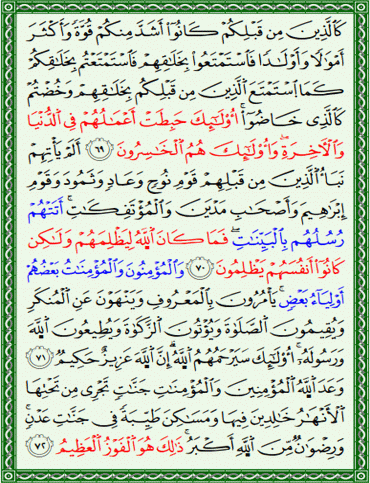 كَٱلَّذِينَ مِن قَبْلِكُمْ كَانُوٓا۟ أَشَدَّ مِنكُمْ قُوَّةً وَأَكْثَرَ
أَمْوَٰلًا وَأَوْلَٰدًا فَٱسْتَمْتَعُوا۟ بِخَلَٰقِهِمْ فَٱسْتَمْتَعْتُم بِخَلَٰقِكُمْ
كَمَا ٱسْتَمْتَعَ ٱلَّذِينَ مِن قَبْلِكُم بِخَلَٰقِهِمْ وَخُضْتُمْ
كَٱلَّذِى خَاضُوٓا۟ ۚ أُو۟لَٰٓئِكَ حَبِطَتْ أَعْمَٰلُهُمْ فِى ٱلدُّنْيَا
وَٱلْءَاخِرَةِ ۖ وَأُو۟لَٰٓئِكَ هُمُ ٱلْخَٰسِرُونَ ٦٩ أَلَمْ يَأْتِهِمْ
نَبَأُ ٱلَّذِينَ مِن قَبْلِهِمْ قَوْمِ نُوحٍ وَعَادٍ وَثَمُودَ وَقَوْمِ
إِبْرَٰهِيمَ وَأَصْحَٰبِ مَدْيَنَ وَٱلْمُؤْتَفِكَٰتِ ۚ أَتَتْهُمْ
رُسُلُهُم بِٱلْبَيِّنَٰتِ ۖ فَمَا كَانَ ٱللَّهُ لِيَظْلِمَهُمْ وَلَٰكِن
كَانُوٓا۟ أَنفُسَهُمْ يَظْلِمُونَ ٧٠ وَٱلْمُؤْمِنُونَ وَٱلْمُؤْمِنَٰتُ بَعْضُهُمْ
أَوْلِيَآءُ بَعْضٍ ۚ يَأْمُرُونَ بِٱلْمَعْرُوفِ وَيَنْهَوْنَ عَنِ ٱلْمُنكَرِ
وَيُقِيمُونَ ٱلصَّلَوٰةَ وَيُؤْتُونَ ٱلزَّكَوٰةَ وَيُطِيعُونَ ٱللَّهَ
وَرَسُولَهُۥٓ ۚ أُو۟لَٰٓئِكَ سَيَرْحَمُهُمُ ٱللَّهُ ۗ إِنَّ ٱللَّهَ عَزِيزٌ حَكِيمٌ ٧١
وَعَدَ ٱللَّهُ ٱلْمُؤْمِنِينَ وَٱلْمُؤْمِنَٰتِ جَنَّٰتٍ تَجْرِى مِن تَحْتِهَا
ٱلْأَنْهَٰرُ خَٰلِدِينَ فِيهَا وَمَسَٰكِنَ طَيِّبَةً فِى جَنَّٰتِ عَدْنٍ ۚ
وَرِضْوَٰنٌ مِّنَ ٱللَّهِ أَكْبَرُ ۚ ذَٰلِكَ هُوَ ٱلْفَوْزُ ٱلْعَظِيمُ ٧٢